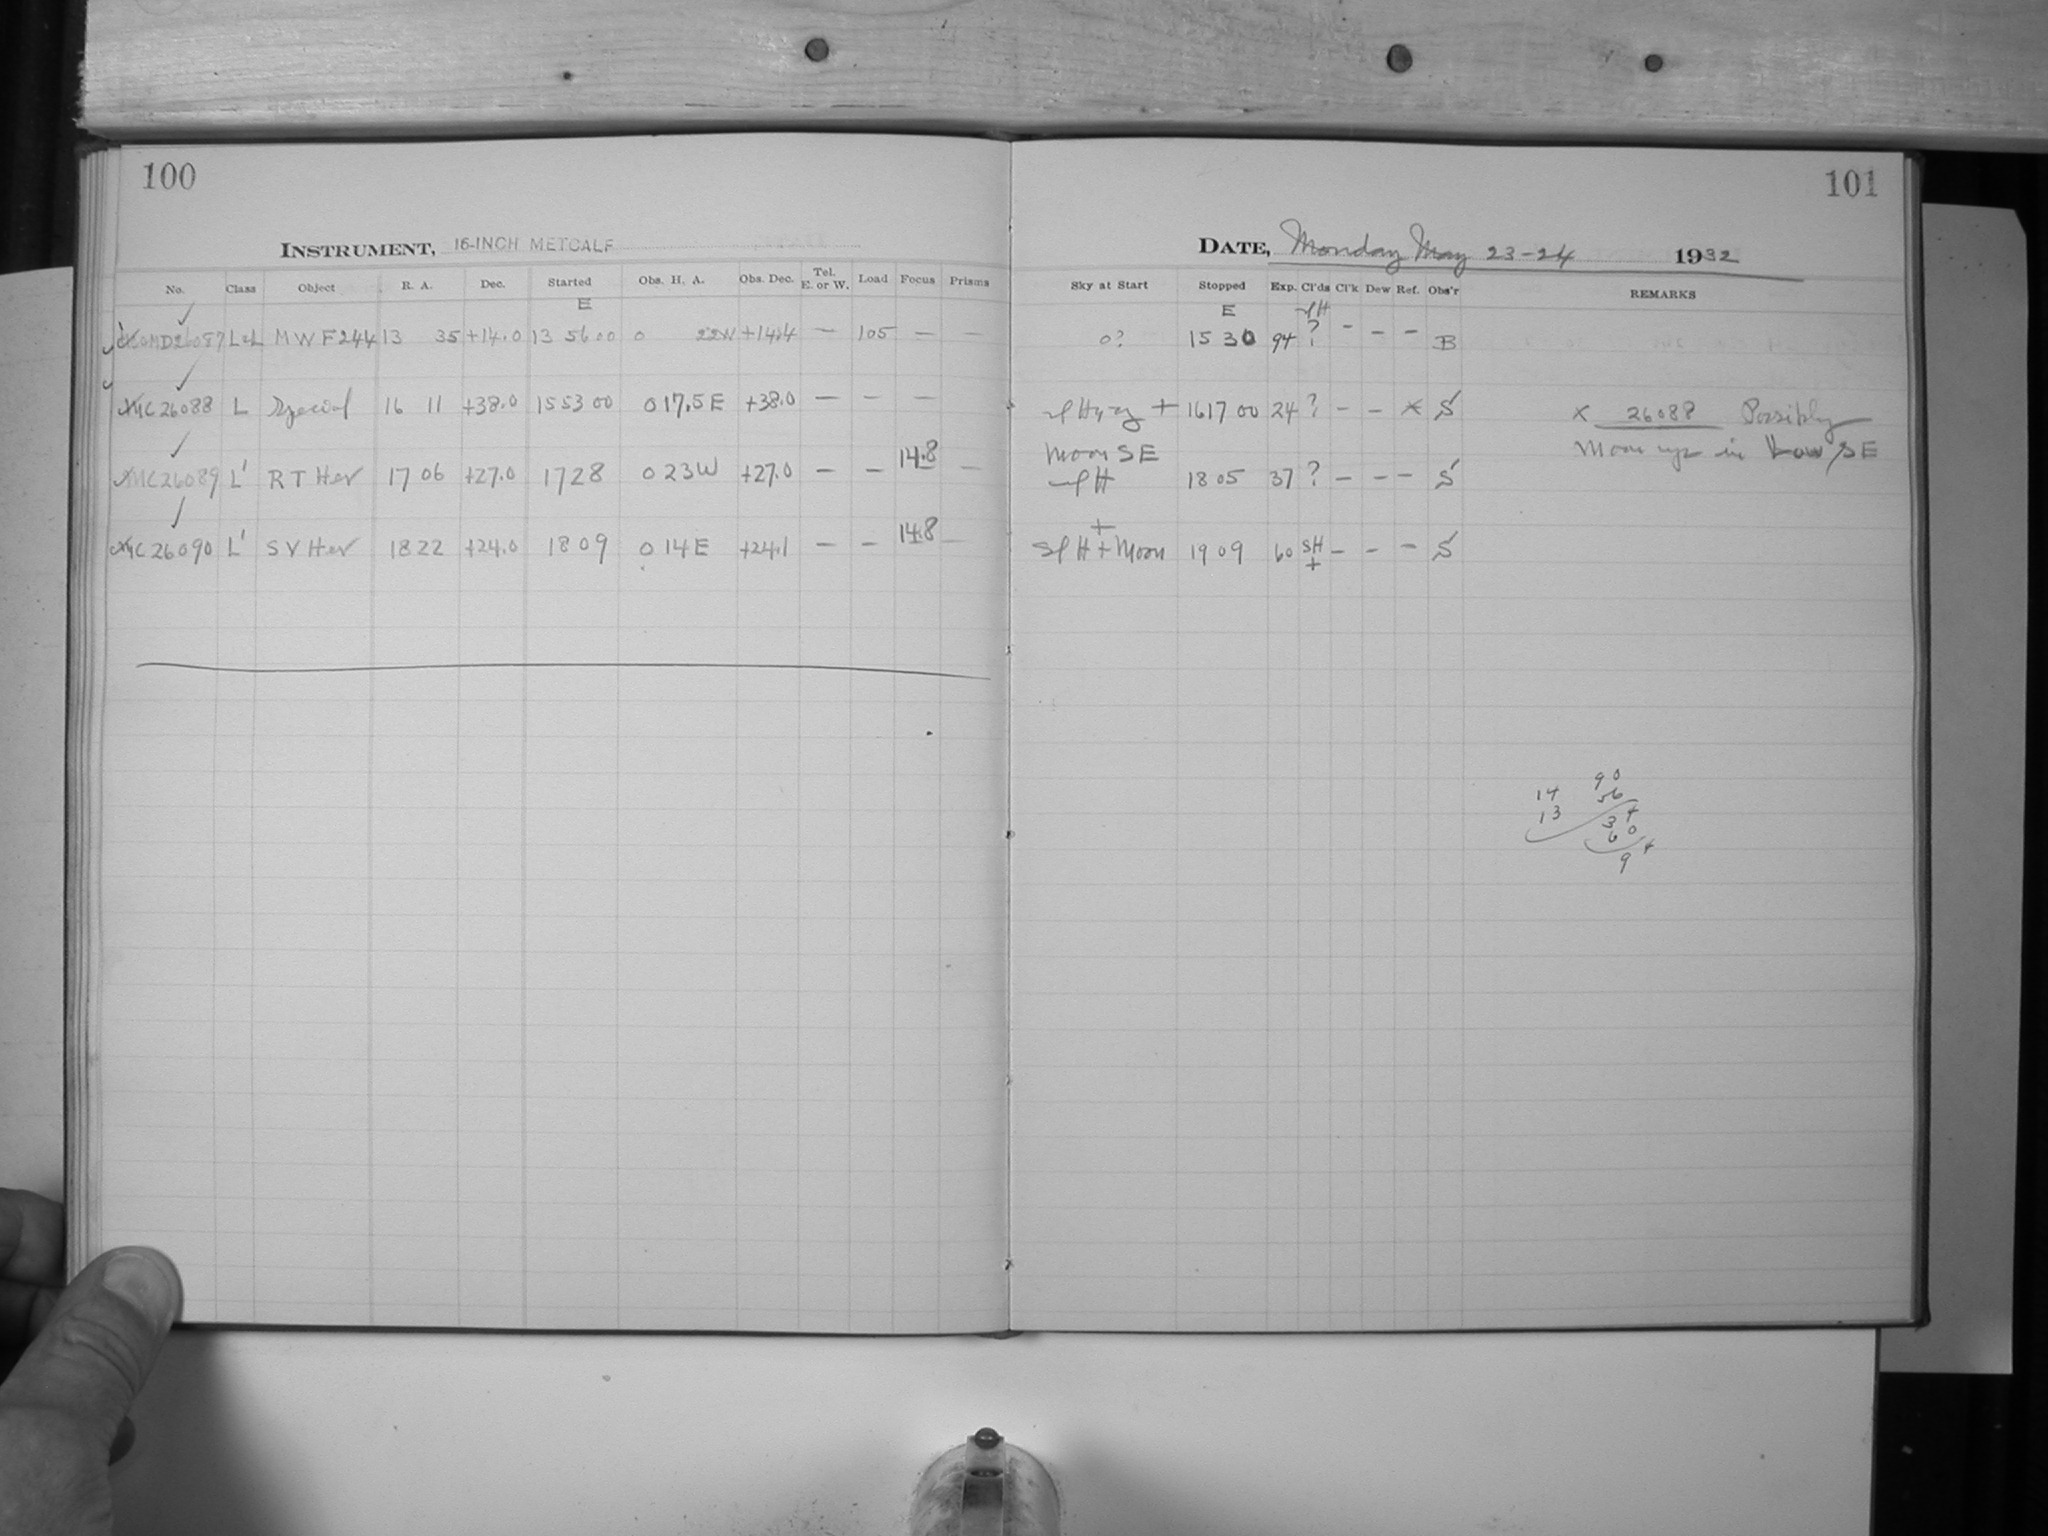 100
INSTRUMENT, 16-INCH METCALF
No. Class Object R. A. Dec. Started Obs. H. A. Obs. Dec. Tel. E. or W. Load Focus Prisms
E
26087 L MWF244 13 35 +14.0 13 56 00 0 22W +14.4 — 105 — —
MC26088 L Special 16 11 +38.0 15 53 00 0 17.5 E +38.0 — — —
MC26089 L' RT Her 17 06 +27.0 17 28 0 23 W +27.0 — — 14.8 —
MC26090 L' SV Her 18 22 +24.0 18 09 0 14 E +24.1 — — 14.8 —
101
DATE, Monday May 23-24 1932
Sky at Start Stopped Exp. Cl'ds Cl'k Dew Ref. Obs'r REMARKS
E
0? 15 30 94 ? – – – B
+ 16 17 00 24 ? – – x S x 26088 Possibly
Moon SE Moon up in Low SE
18 05 37 ? – – – S
+
Sl H + Moon 19 09 60 SH + – – – S
14 90
13 56
34
60
94